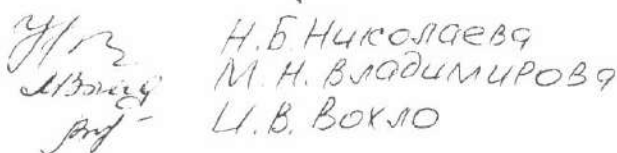 Н.Б. Николаева
М.Н. Владимирова
И.В. Вохло